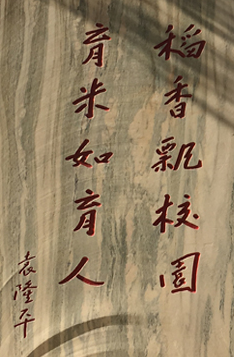 稻香飘校园
育米如育人
袁隆平